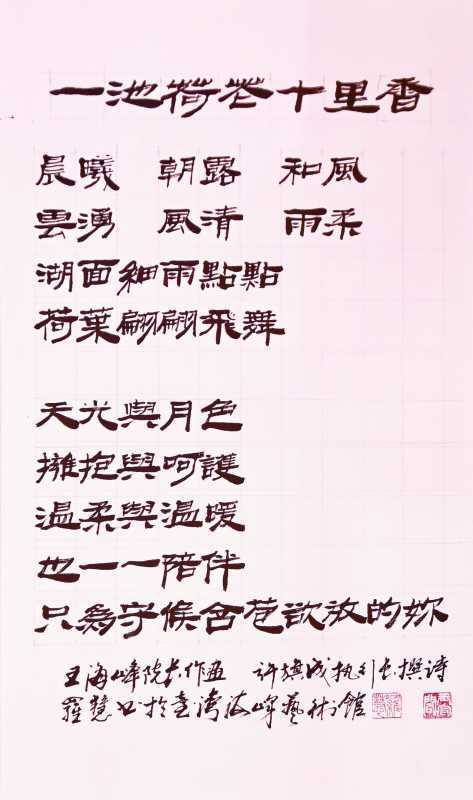 一池荷花十里香
晨曦 朝露 和風
雲湧 風清 雨柔
湖面細雨點點
荷葉翩翩飛舞
天光與月色
擁抱與呵護
温柔與温暖
也一一陪伴
只為守候含苞欲放的妳
王海峰院長作画 許旗成执行长撰詩
羅慧書於臺灣海峰藝術館